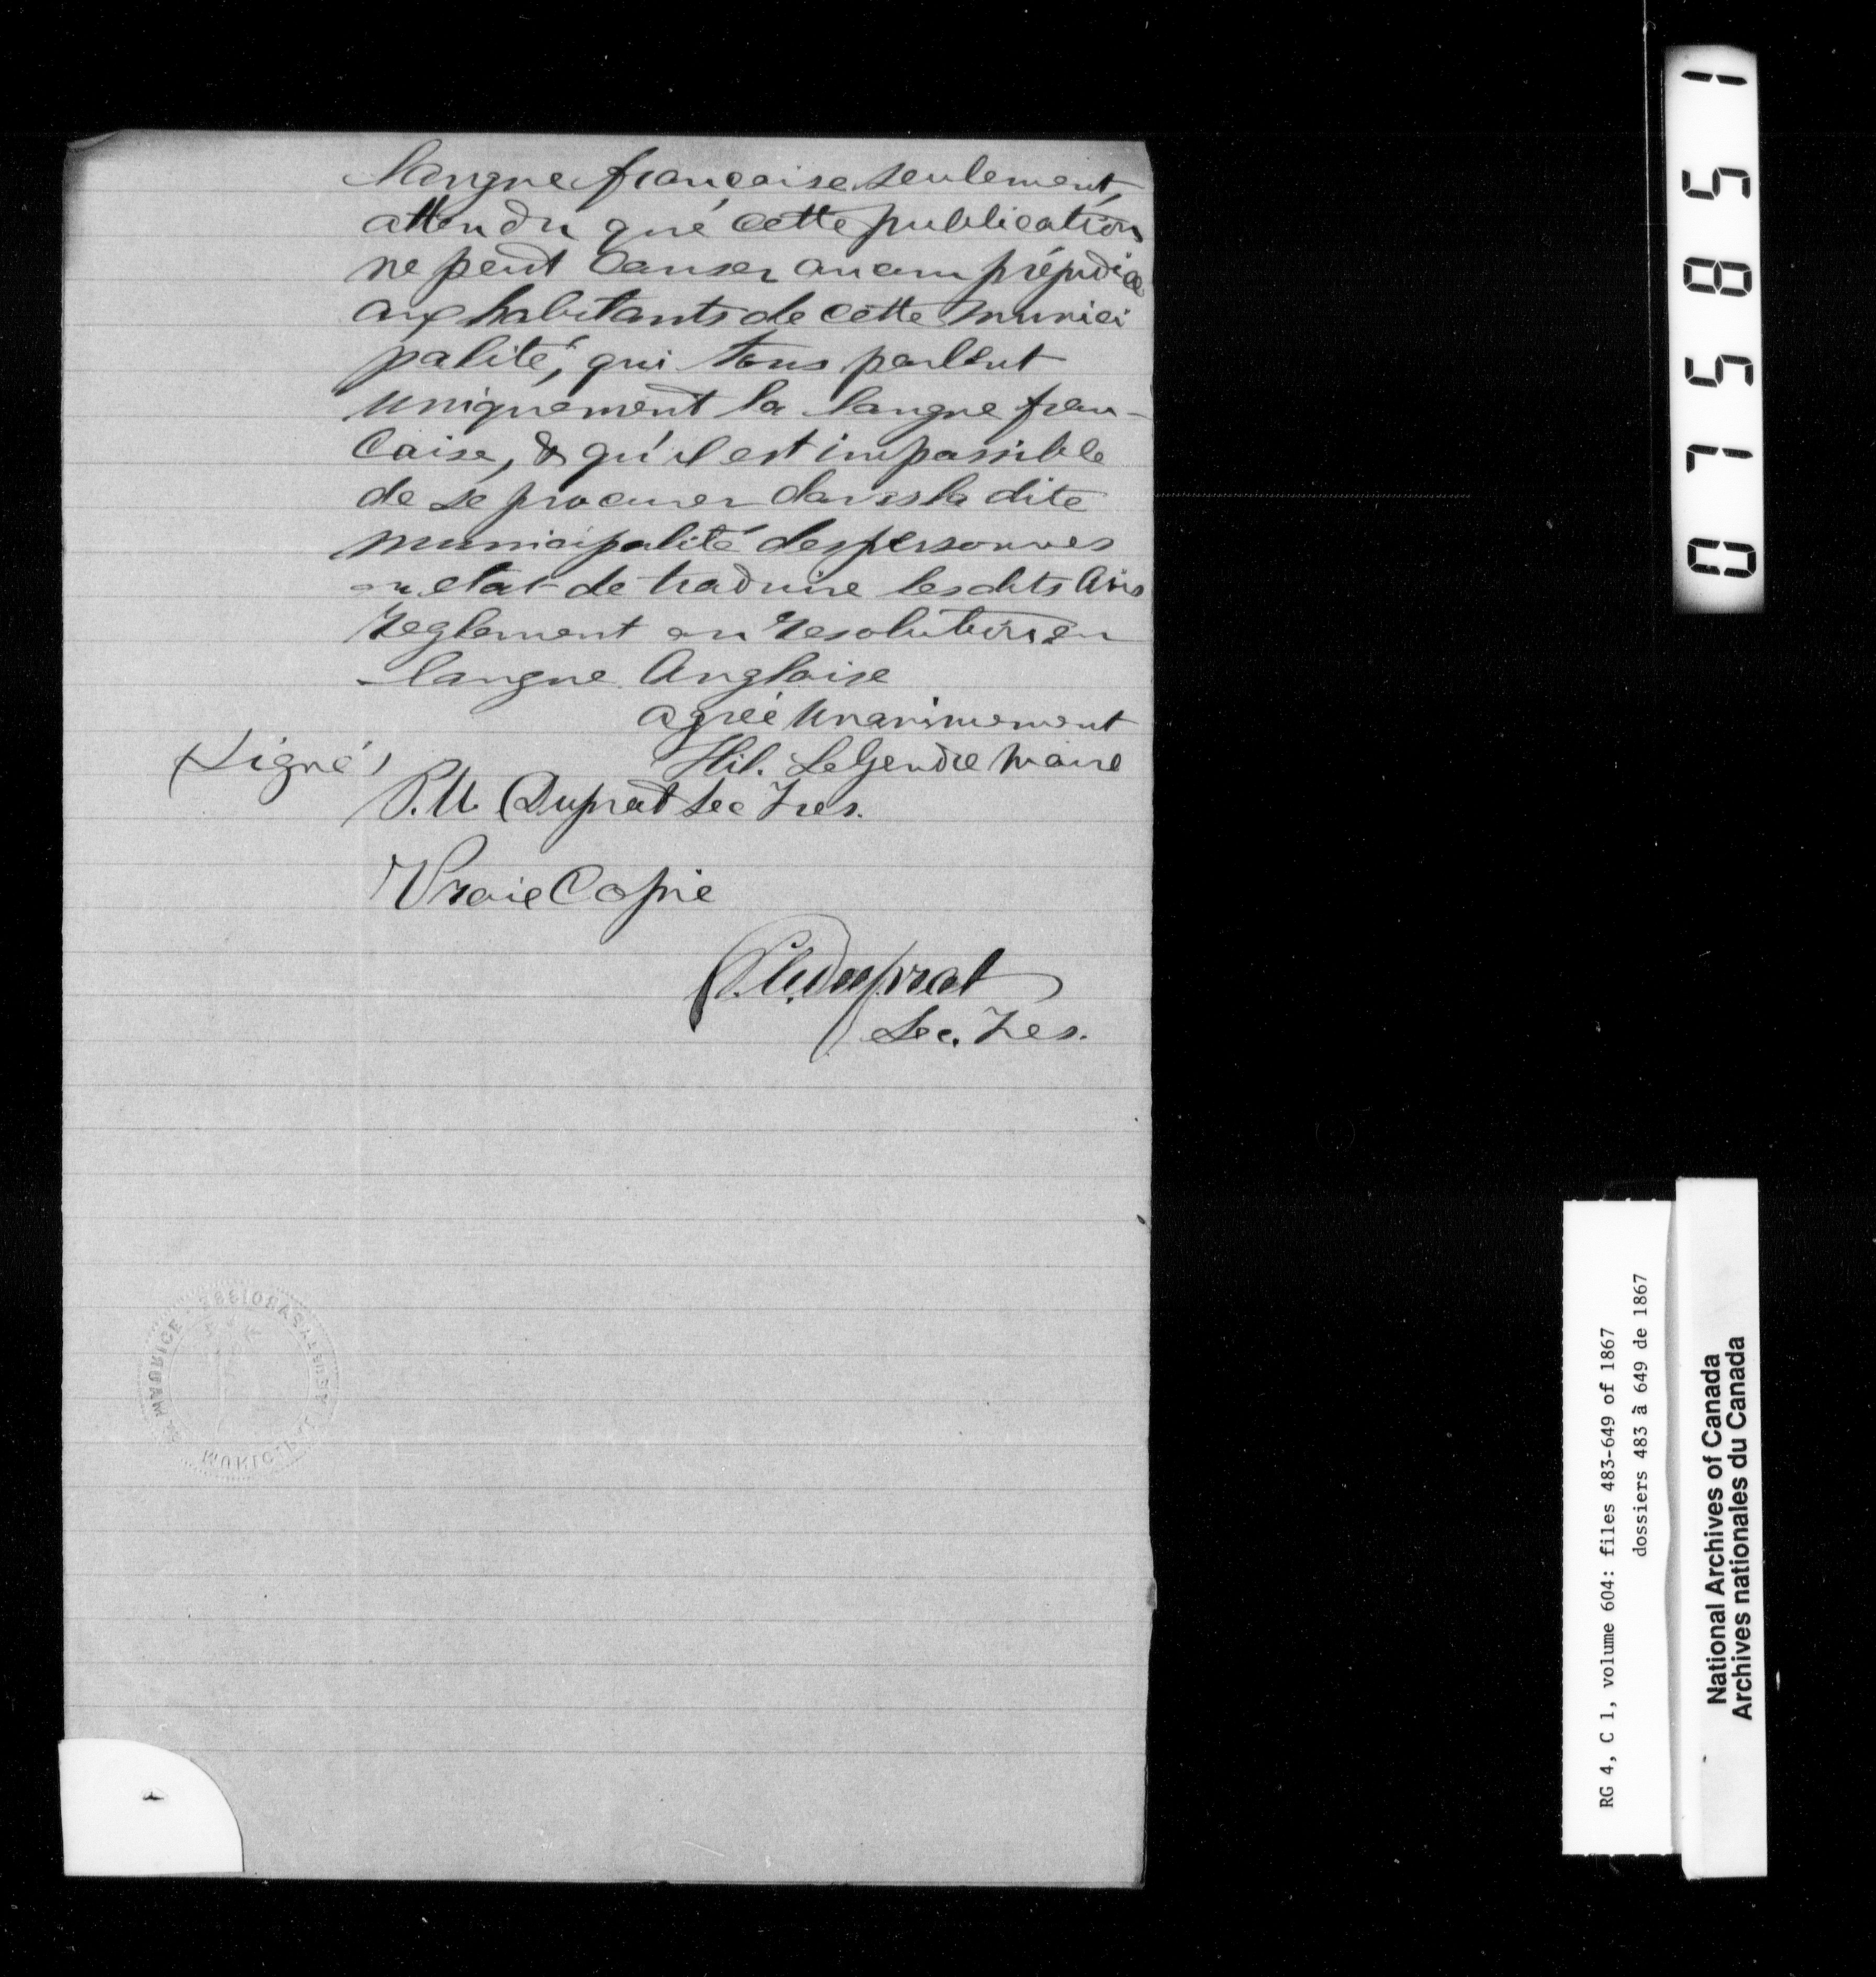 langue française seulement,
attendu que cette publication
ne peut causer aucun préjudice
aux habitants de cette munici
palité, qui tous parlent
uniquement la langue fran-
caise, & qu'il est impossible
de se procurer dans la dite
municipalité des personnes
en etat de traduire les dits Avis
reglement ou resolution en
langue Anglaise
agréé unanimement
Hil. LeGendre Maire
(Signé)
P.U. Duprat Sec Tres.
Vraie Copie
P.U. Duprat
Sec. Tres.
ST. MAURICE
MUNICI
075851
RG 4, C 1, volume 604: files 483-649 of 1867
dossiers 483 à 649 de 1867
National Archives of Canada
Archives nationales du Canada